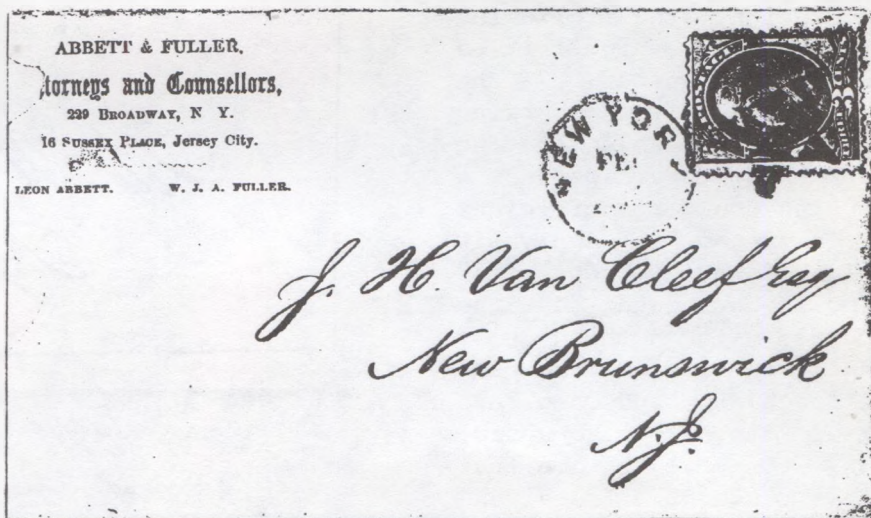 ABBETT & FULLER,
ttorneys and Counsellors,
229 BROADWAY, N Y.
16 SUSSEX PLACE, Jersey City.
LEON ABBETT. W. J. A. FULLER.
NEW YORK
FE
J. H. Van Cleef Esq
New Brunswick
N.J.